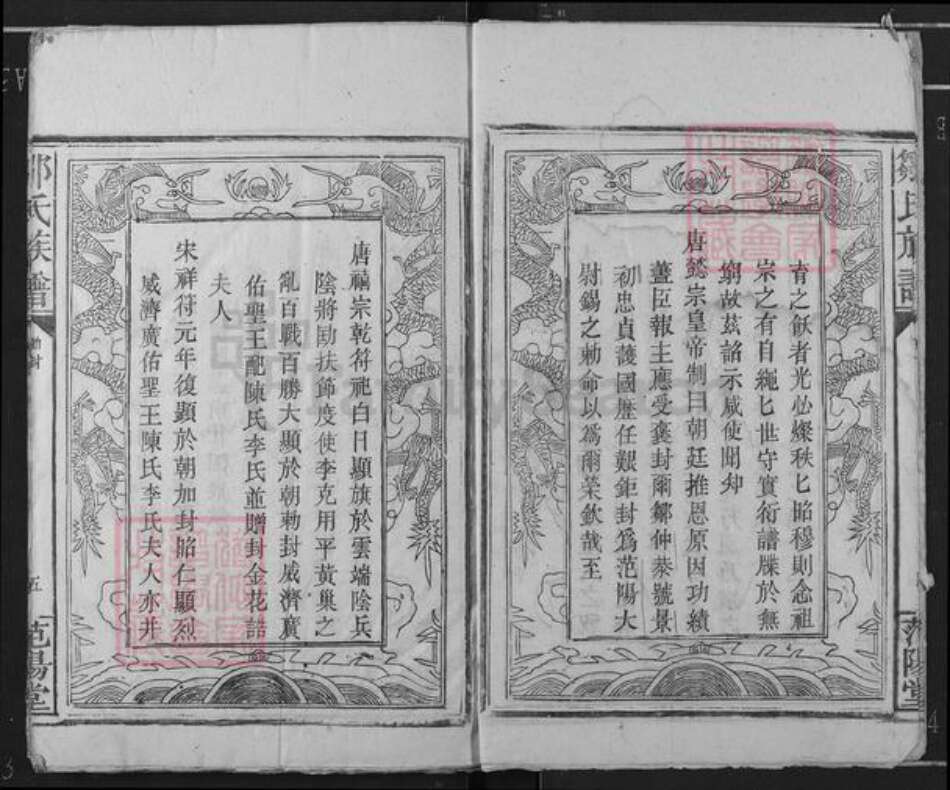 鄒氏族譜
青之飫者光必燦秩匕昭穆則念祖
宗之有自繩匕世守實衍譜牒於無
窮故茲詔示咸使聞知
唐懿宗皇帝制曰朝廷推恩原因功績
藎臣報主應受褒封爾鄒仲恭號景
初忠貞護國歷任艱鉅封為范陽大
尉錫之勅命以為爾榮欽哉至
范陽堂
唐禧宗乾符祀白日顯旗於雲端陰兵
陰將勛扶節度使李克用平黃巢之
亂百戰百勝大顯於朝勅封威濟廣
佑聖王配陳氏李氏並贈封金花誥
夫人
宋祥符元年復顯於朝加封昭仁顯烈
威濟廣佑聖王陳氏李氏夫人亦并
鄒氏族譜
五
范陽堂